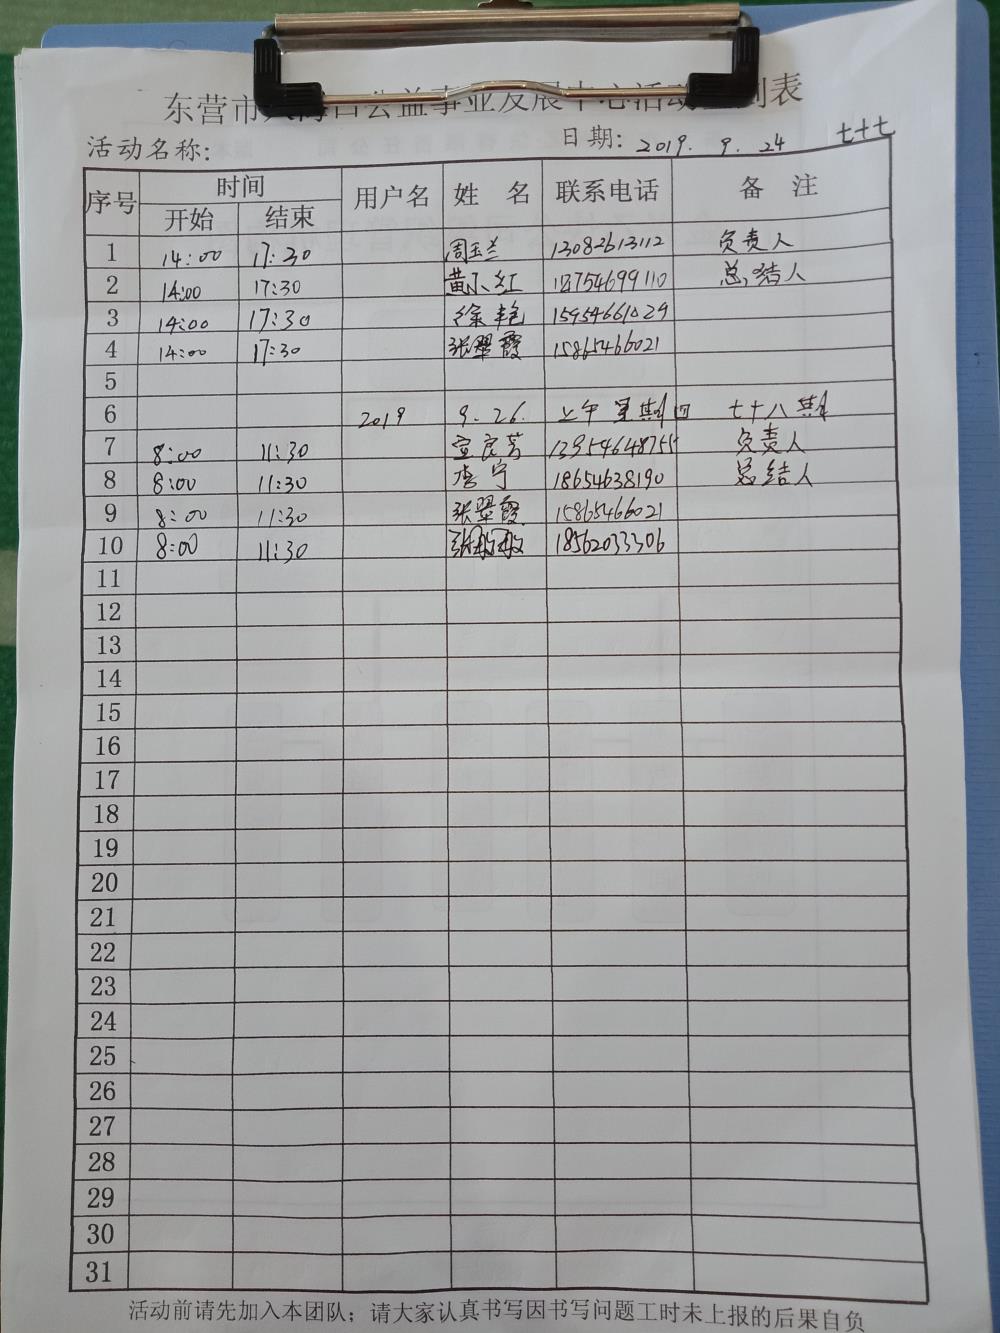 东营市 公益事业发展中心活动 到表
活动名称: 日期: 2019. 9. 24 七十七
序号 时间 用户名 姓 名 联系电话 备 注
开始 结束
1 14:00 17:30 周玉兰 13082613112 负责人
2 14:00 17:30 黄小红 754699110 总结人
3 14:00 17:30 徐艳 15954661029
4 14:00 17:30 张翠霞 15865466021
5
6 2019 9.26. 上午 星期四 七十八期
7 8:00 11:30 宣良芳 13954648755 负责人
8 8:00 11:30 李宁 18654638190 总结人
9 8:00 11:30 张翠霞 15865466021
10 8:00 11:30 张 18562033306
11
12
13
14
15
16
17
18
19
20
21
22
23
24
25
26
27
28
29
30
31
活动前请先加入本团队；请大家认真书写因书写问题工时未上报的后果自负